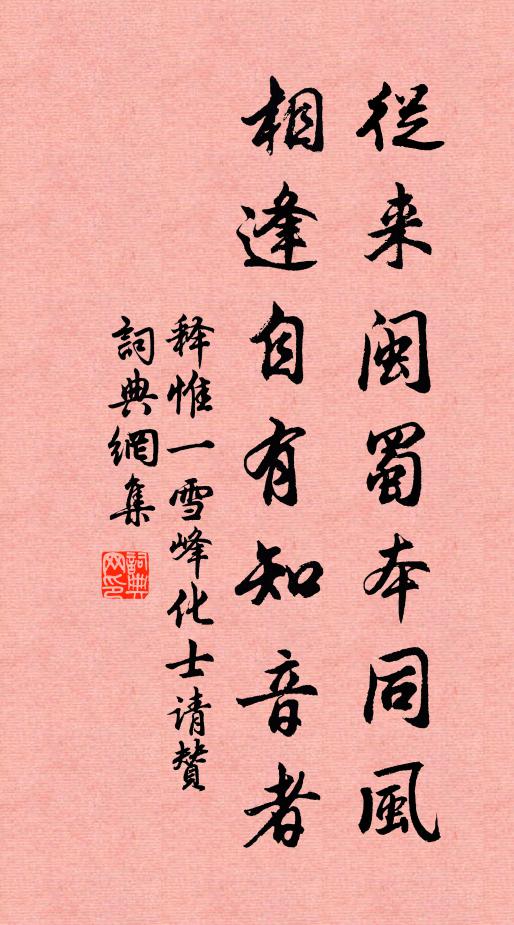 從来閩蜀本同風
相逢自有知音者
释惟一雪峰化士请贊
詞典網集
詞典网印